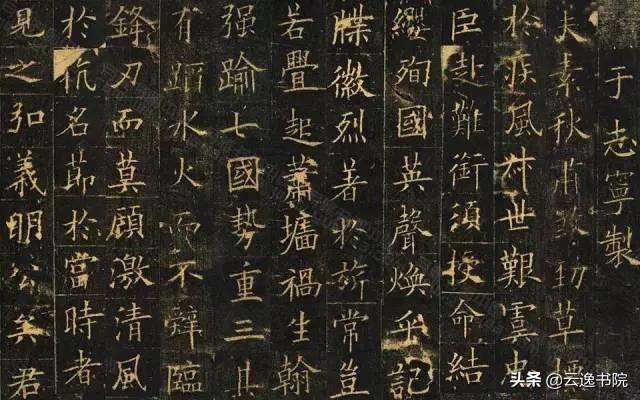 于志寧製
夫素秋肅煞勁草標
於疾風叔世艱虞忠
臣赴難銜須授命結
纓殉國英聲煥乎記
牒徽烈著於旂常豈
若舋起蕭墻禍生翰
强踰七國勢重三其
有蹈水火而不辭臨
鋒刃而莫顧激清風
於抗名節於當時者
見之弘義明公矣君
头条 @云逸书院